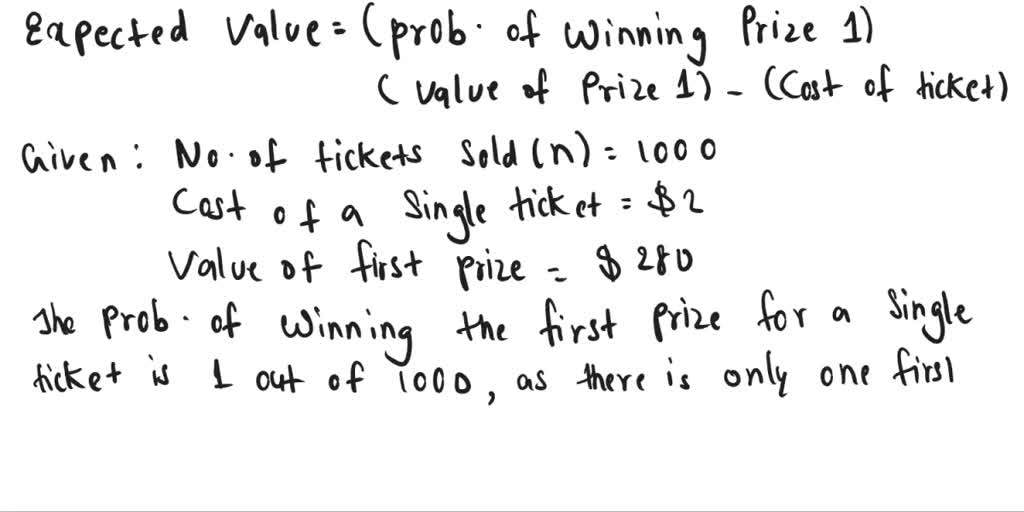 Expected Value = (prob. of winning Prize 1)
(value of Prize 1) - (Cost of ticket)
Given: No. of tickets Sold (n) = 1000
Cost of a Single ticket = $2
Value of first prize = $280
The prob. of winning the first prize for a single
ticket is 1 out of 1000, as there is only one first